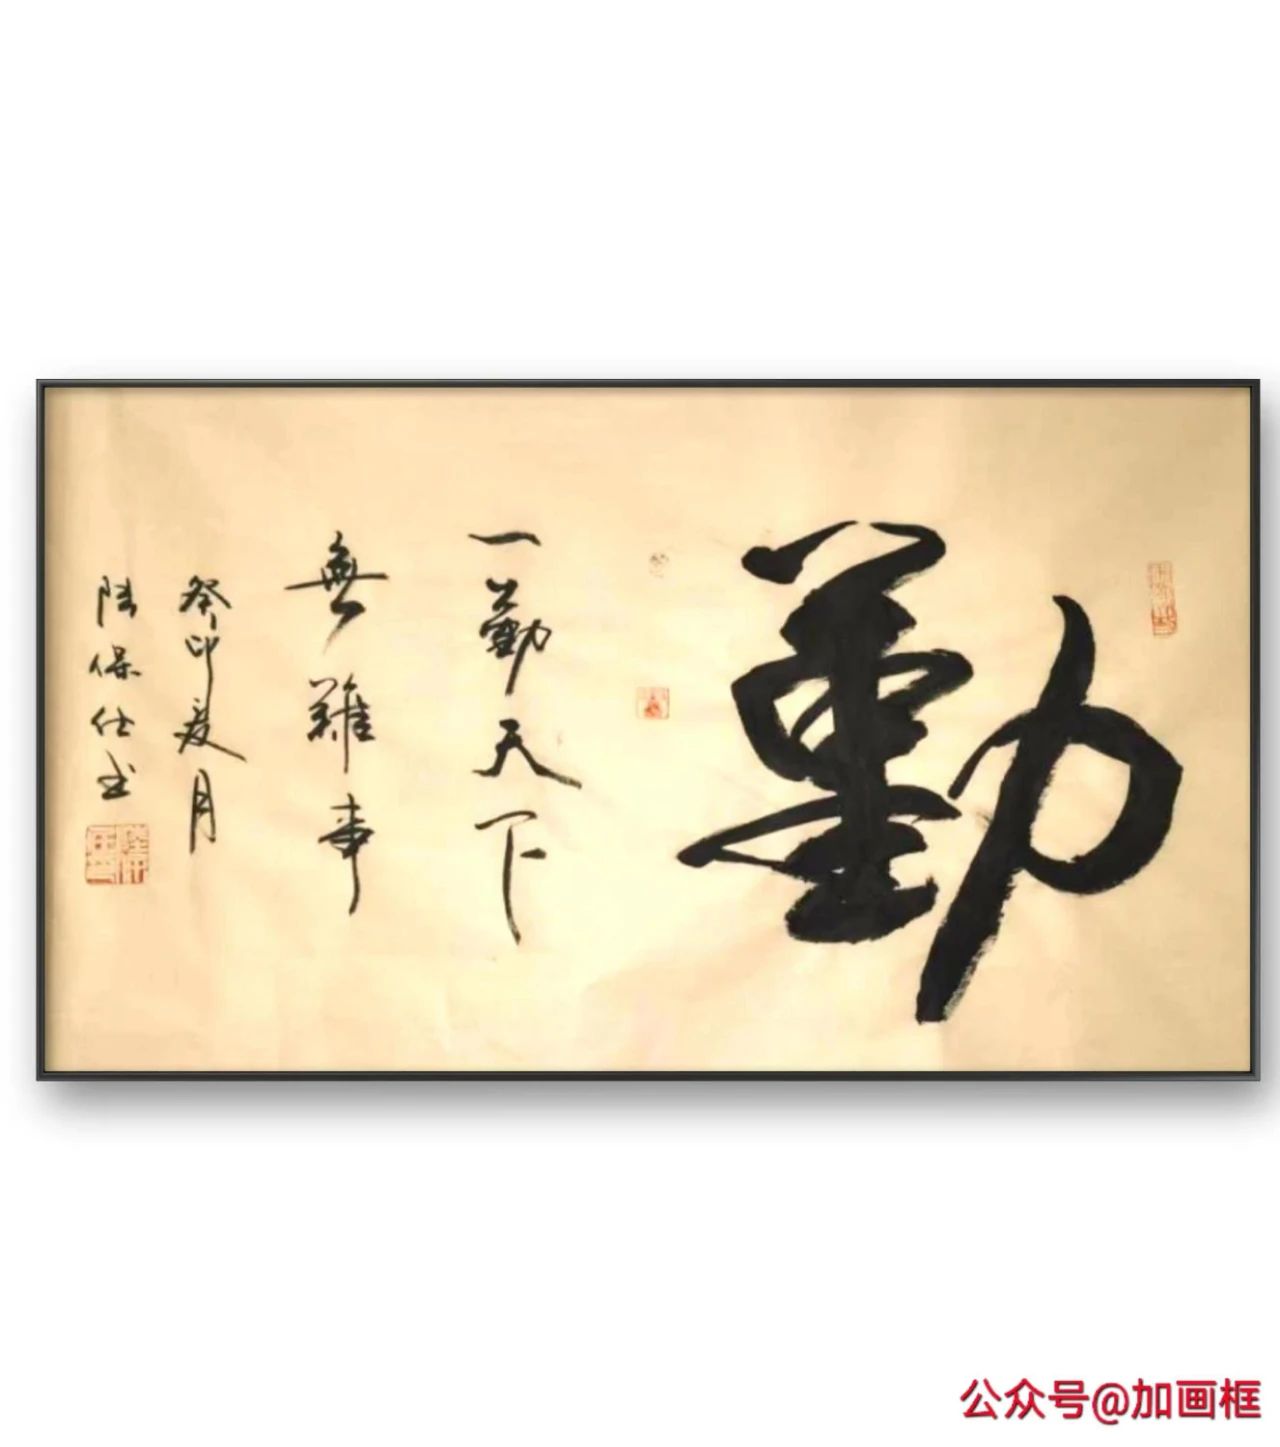 勤
一勤天下
無難事
癸卯夏月
陆保仕书
公众号@加画框